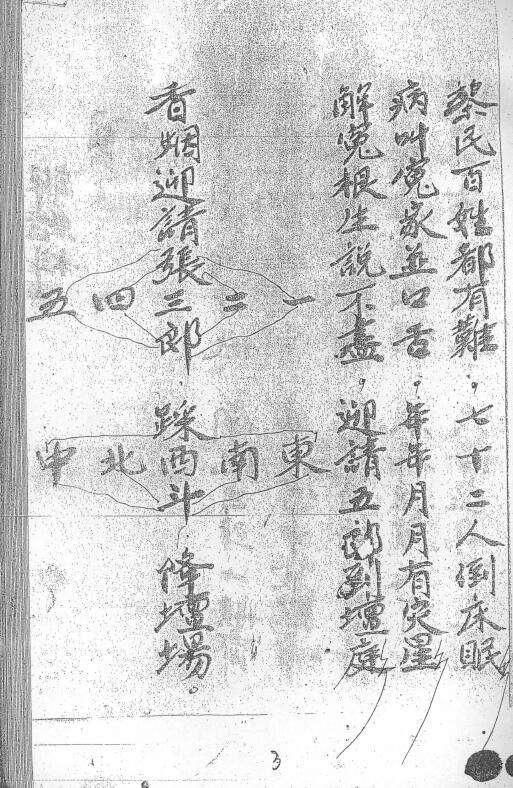 黎民百姓都有難。七十二人倒床眠
病叫寃家並口舌。年年月月有灾星
解寃根生說不盡。迎請五郎到壇庭
一 東
二 南
香烟迎請張三郎.踩西斗.降壇塲。
四 北
五 中
3